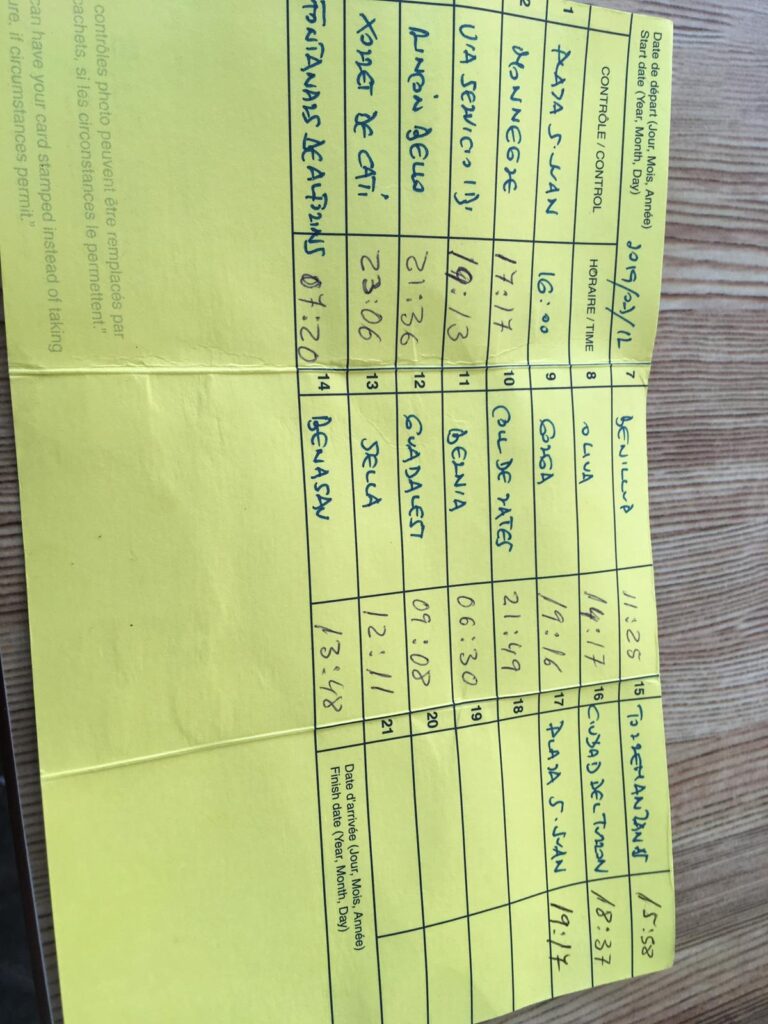 Date de départ (Jour, Mois, Année)
Start date (Year, Month, Day)
CONTRÔLE / CONTROL HORAIRE / TIME
1 PLAZA S. JUAN 16:00
2 MONNEGRE 17:17
VIA SERVICIO 19:13
RINCÓN BELLO 21:36
XORRET DE CATÍ 23:06
FONTANARS DE ALFORINS 07:20
contrôles photo peuvent être remplacés par
cachets, si les circonstances le permettent."
can have your card stamped instead of taking
if circumstances permit."
7 BENILLUP 11:25
8 OLIVA 14:17
9 GORGA 19:16
10 COLL DE RATES 21:49
11 BERNIA 06:30
12 GUADALEST 09:08
13 SELLA 12:11
14 BENASAU 13:48
15 TORREMANZANAS 15:58
16 CIUDAD DEL TURRON 18:37
17 PLAZA S. JUAN 19:17
18
19
20
21
Date d'arrivée (Jour, Mois, Année)
Finish date (Year, Month, Day)